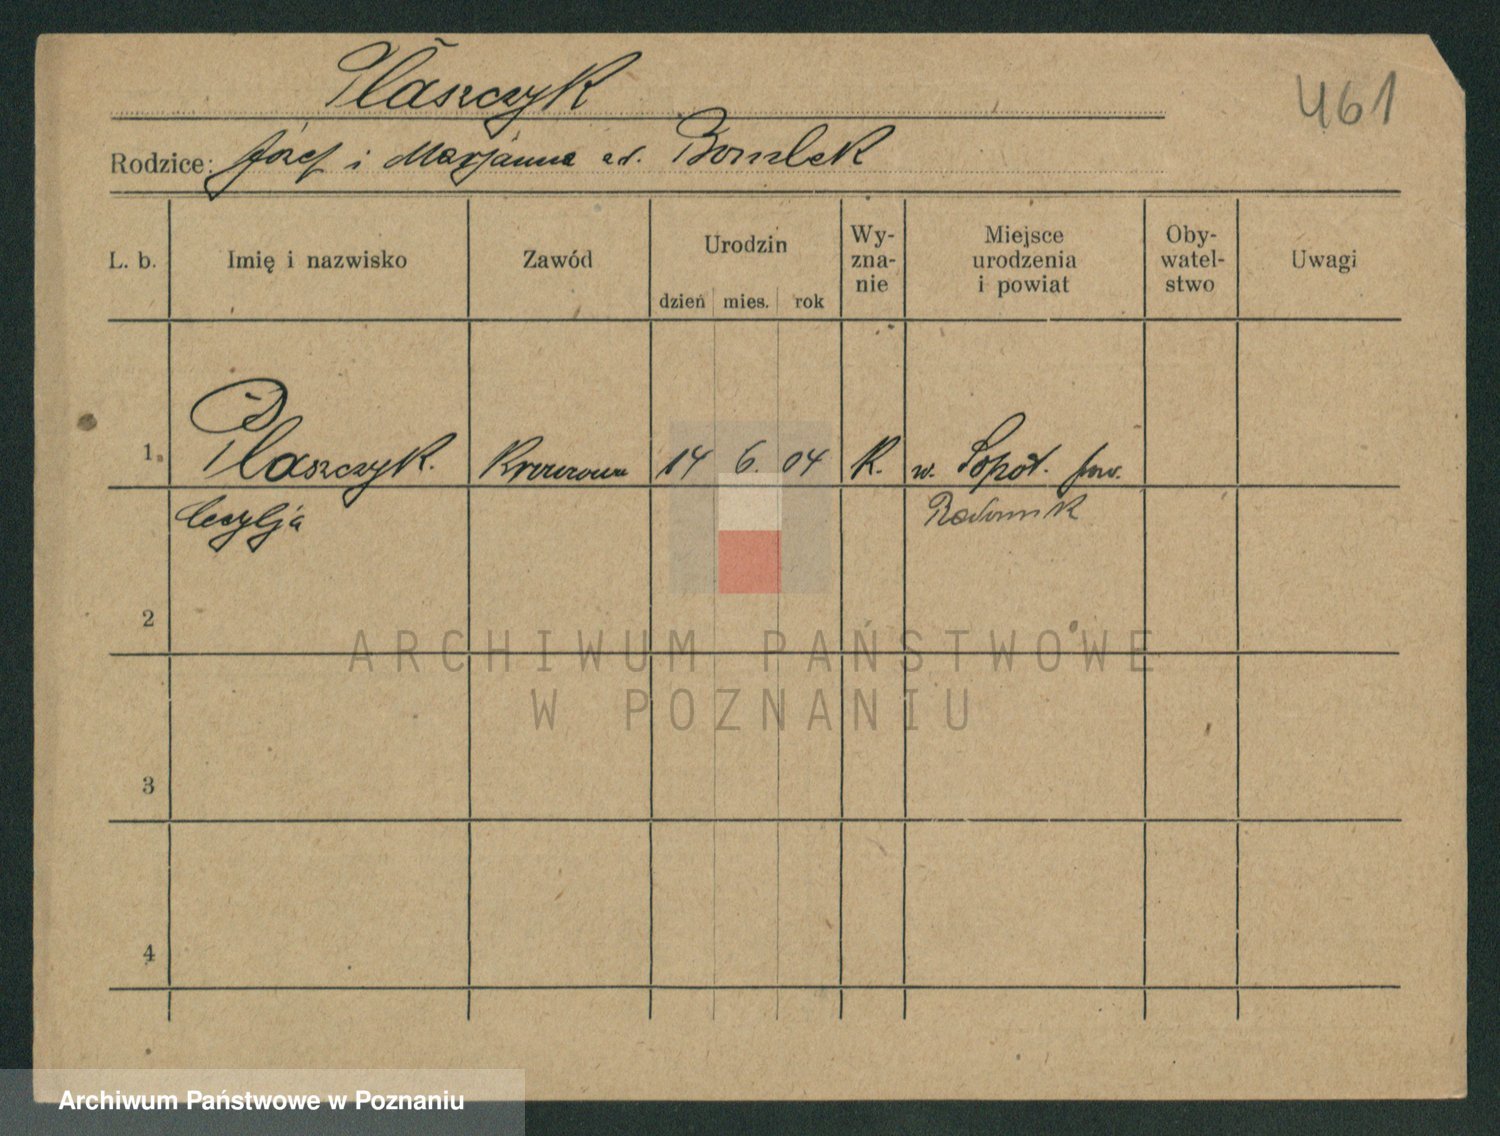 Płaszczyk
461
Rodzice: Józef i Marjanna zd.
L. b. Imię i nazwisko Zawód Urodzin dzień mies. rok Wy-
zna-
nie Miejsce
urodzenia
i powiat Oby-
watel-
stwo Uwagi
1. Płaszczyk. Krawcowa 14 6. 04 R. w. Sopot. pow.
Cecylja Radomsk
2
3
4
ARCHIWUM PAŃSTWOWE
W POZNANIU
Archiwum Państwowe w Poznaniu